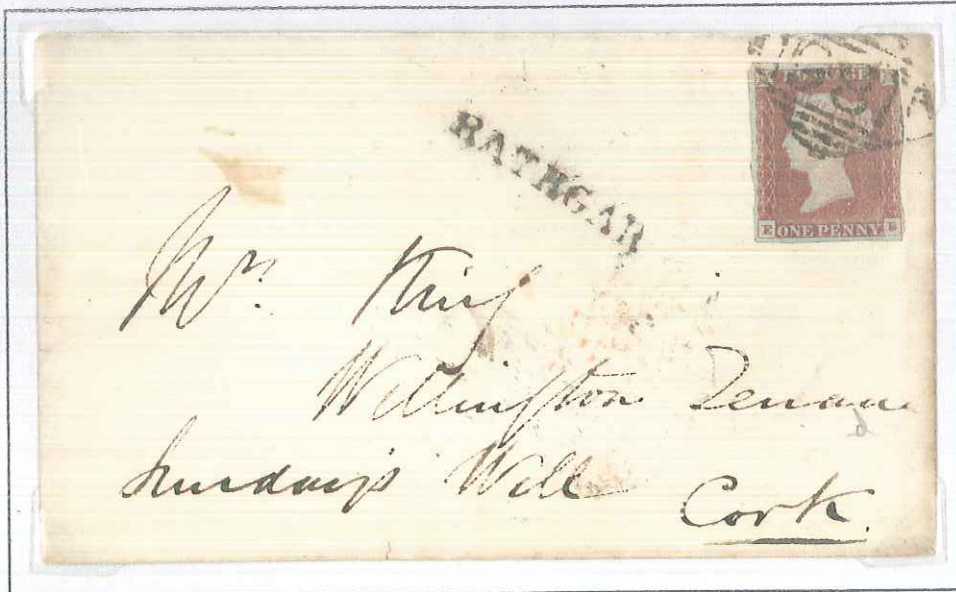 RATHGAR
POSTAGE
E ONE PENNY B
Mrs. King
Wellington Terrace
Sunday's Well
Cork.